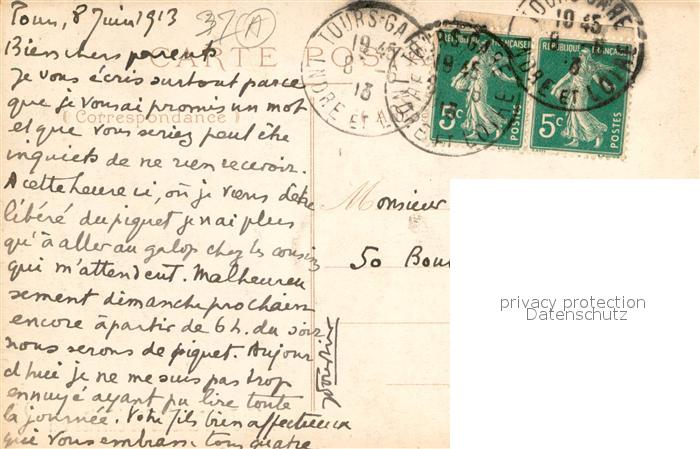 Tours, 8 Juin 1913
37 A
Bien chers parents
CARTE POSTALE
Je vous écris surtout parce
que je vous ai promis un mot
(Correspondance)
et que vous seriez peut être
inquiets de ne rien recevoir.
A cette heure ci, où je viens d'être
libéré du piquet je n'ai plus
qu'à aller au galop chez les cousins
qui m'attendent. Malheureu
sement dimanche prochain
encore à partir de 6 h. du soir
nous serons de piquet. Aujour
d'hui je ne me suis pas trop
ennuyé ayant pu lire toute
la journée. Votre fils bien affectueux
qui vous embrasse tous quatre
TOURS-GARE
19 45
8 - 6
13
INDRE ET LOIRE
TOURS-GARE
19 45
13
INDRE ET LOIRE
TOURS-GARE
19 45
8 - 6
13
INDRE ET LOIRE
REPUBLIQUE FRANÇAISE
5c
POSTES
REPUBLIQUE FRANÇAISE
5c
POSTES
Monsieur
50 Bou
privacy protection
Datenschutz